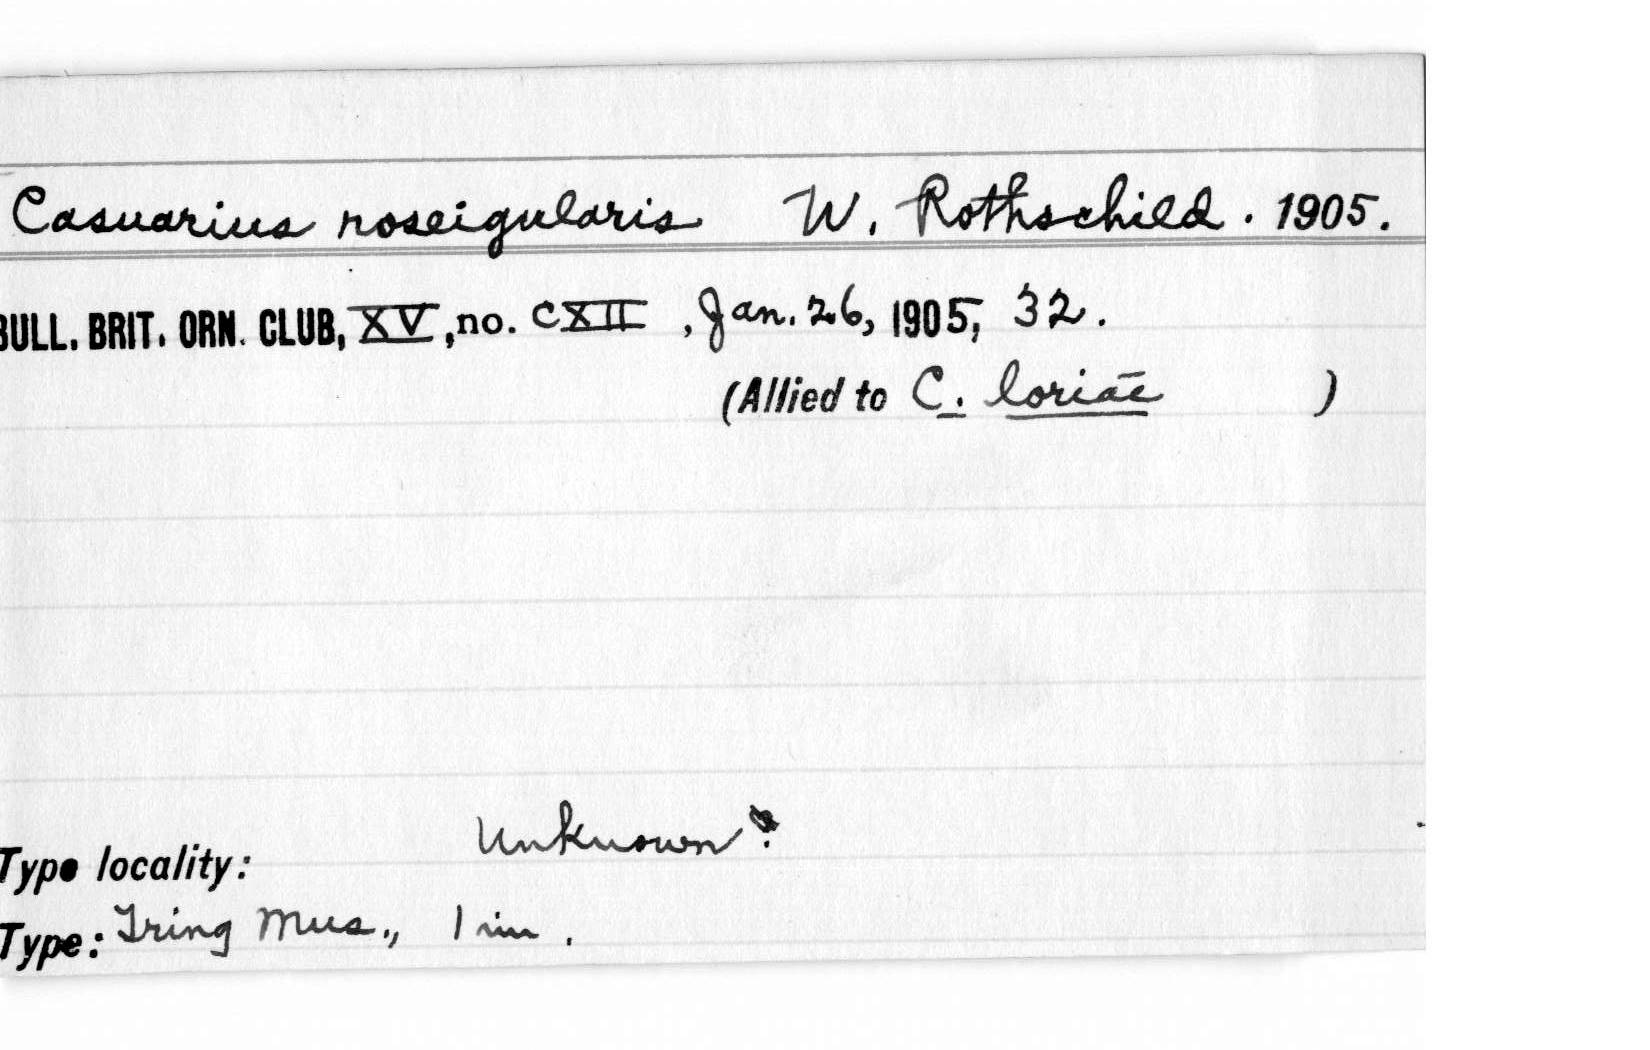 Casuarius roseigularis W. Rothschild. 1905.
BULL. BRIT. ORN. CLUB, XV, no. CXII, Jan. 26, 1905, 32.
(Allied to C. loriae )
Type locality: Unknown?
Type: Tring Mus., 1 im.